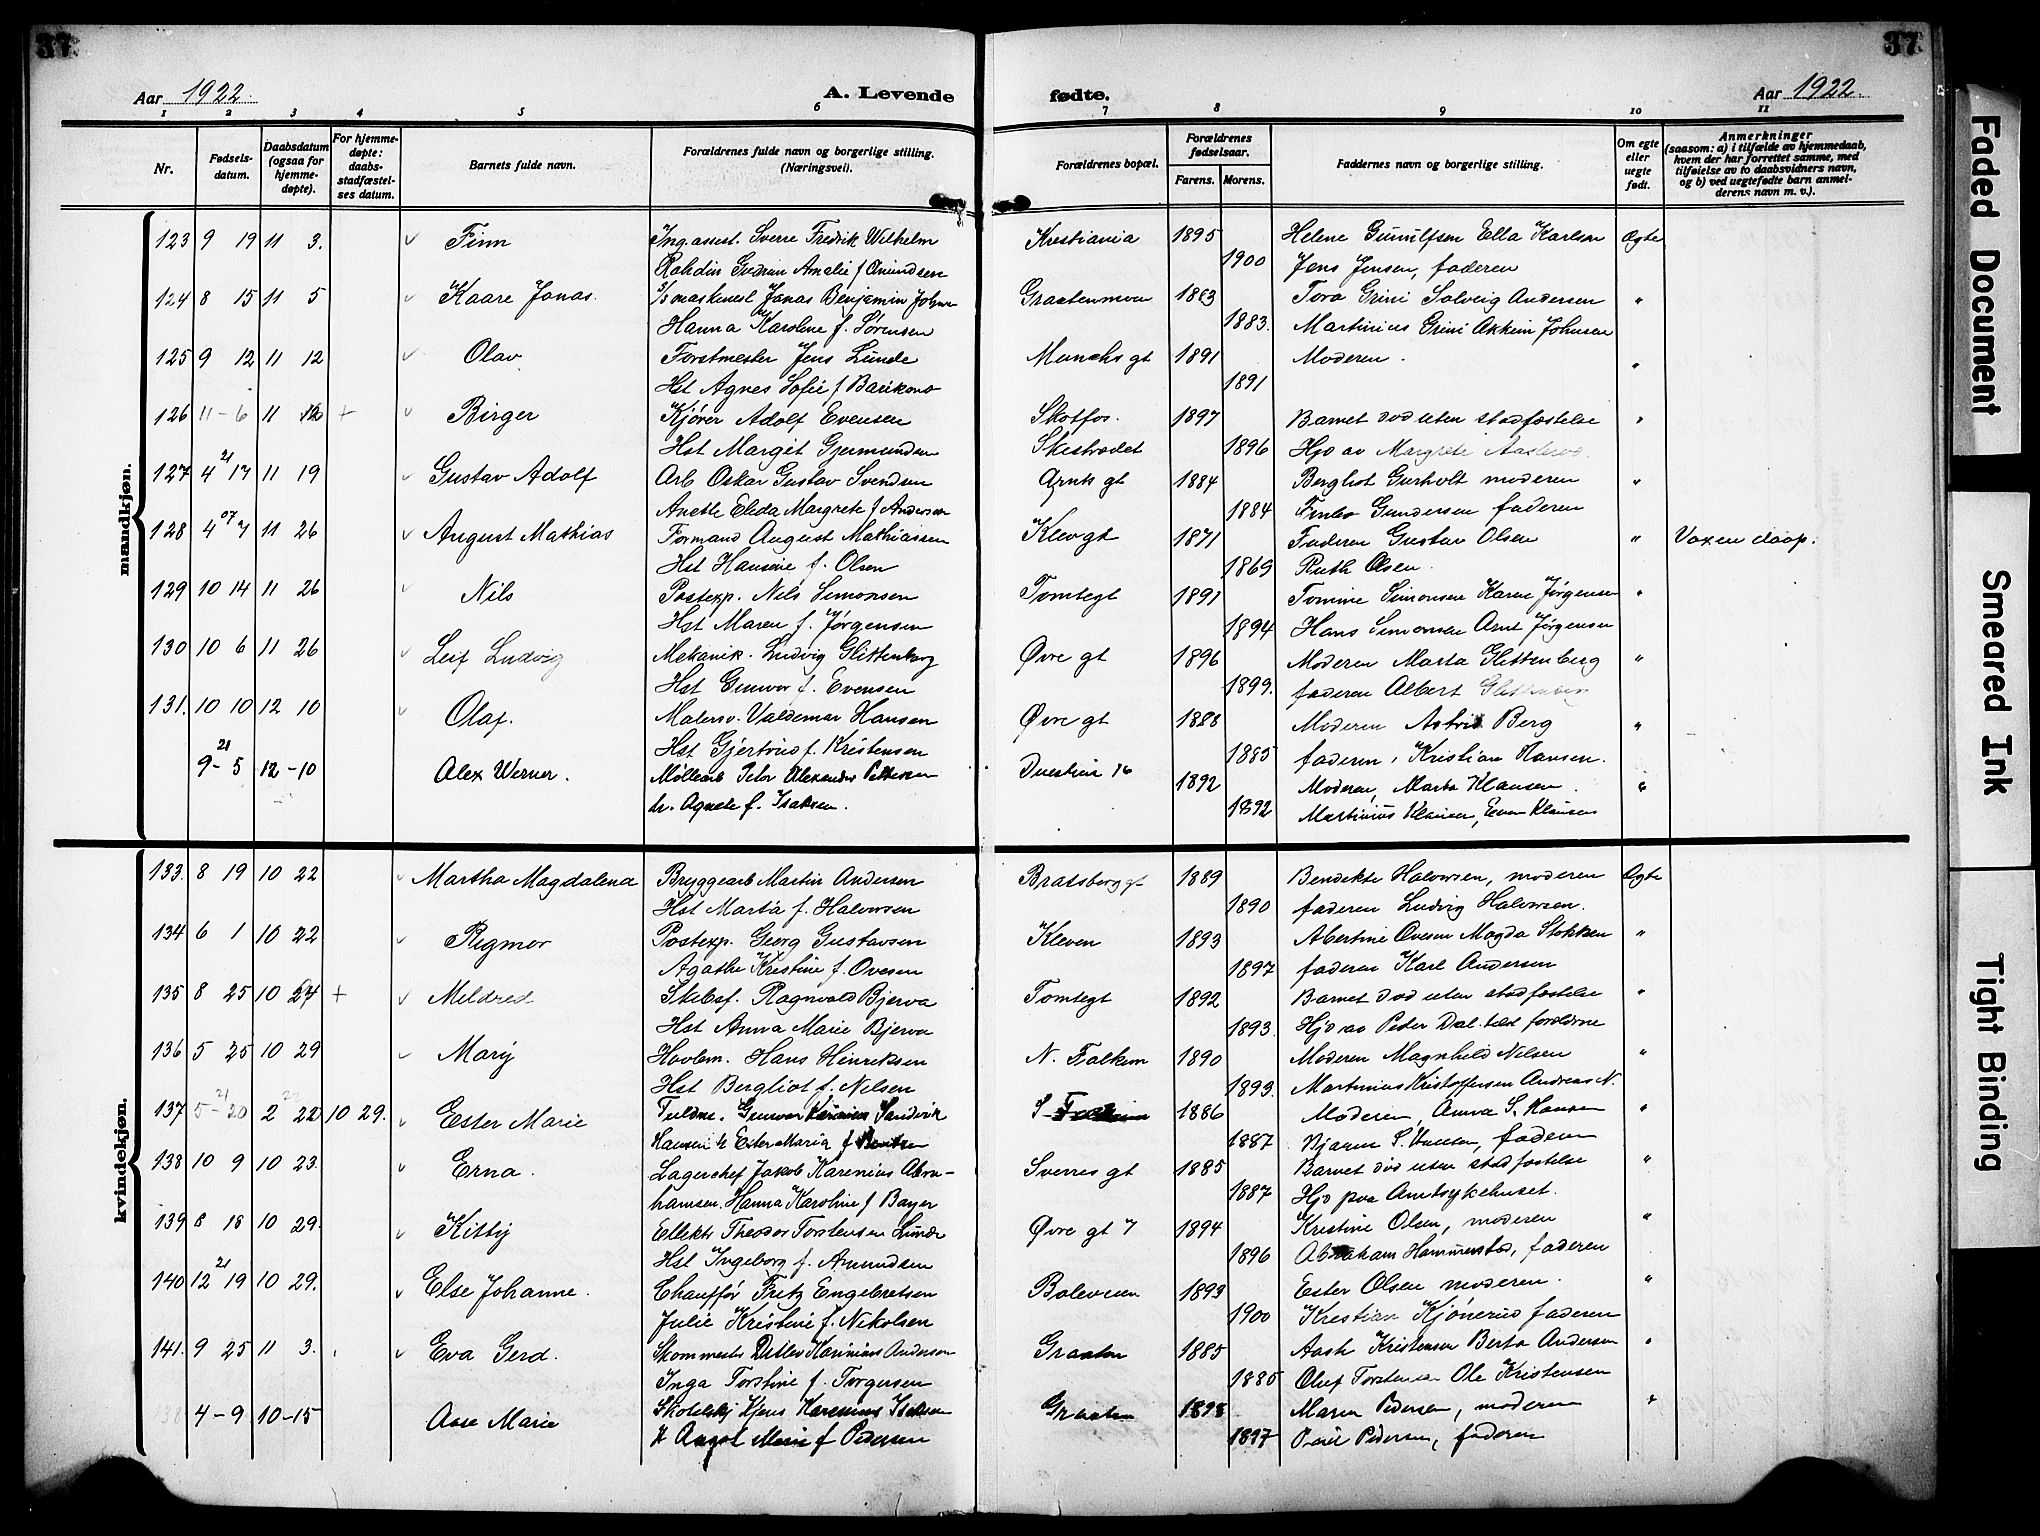 37
37
Aar 1922.
A. Levende
fødte.
Aar 1922.
1 2 3 4 5 6 7 8 9 10 11
Nr.
Fødselsdatum.
Daabsdatum (ogsaa for hjemmedøpte).
For hjemmedøpte: daabsstadfæstelses datum.
Barnets fulde navn.
Forældrenes fulde navn og borgerlige stilling. (Næringsvei).
Forældrenes bopæl.
Forældrenes fødselsaar.
Farens. Morens.
Faddernes navn og borgerlige stilling.
Om egte eller uegte født.
Anmerkninger (saasom: a) i tilfælde av hjemmedaab, hvem der har forrettet samme, med tilføielse av to daabsvidners navn, og b) ved uegtefødte barn anmelderens navn m. v.).
mandkjøn.
123 9 19 11 3. Finn Ing.assist. Sverre Fredrik Wilhelm Kristiania 1895 Helene Gunulfsen Ella Karlsen Egte
Rohdin Gudrun Amalie f Amundsen 1900 Jens Jensen, faderen
124 8 15 11 5 Kaare Jonas. Jonas Benjamin Johns Graatenmoen 1883 Tora Grini Solveig Andersen "
Hanna Karoline f. Sørensen 1883. Martinius Grini Johnsen
125 9 12 11 12 Olav Forstmester Jens Lunde Munchs gt 1891 Moderen. "
Hst Agnes Sofie f 1891
126 11-6 11 + Birger Kjører Adolf Evensen Skotfos. 1897 Barnet død uten stadfæstelse "
Hst Margit Gjermundsen 1896 Hjd av Margrete
127 4 21 17 11 19 Gustav Adolf Arb Oskar Gustav Svendsen Arnts gt 1884 Bergliot Gurholt moderen "
Anette Elida Margrete f Andersen 1884 Gundersen faderen
128 4 07 7 11 26 August Mathias Formand August Mathiassen Klevgt 1871 Faderen Gustav Olsen " Voxen daap.
Hst Hansine f. Olsen 1869 Ruth Olsen.
129 10 14 11 26 Nils Postexp. Nils Simonsen Tomtegt 1891 Tomine Simonsen Karen Jørgensen "
Hst Maren f. Jørgensen 1894 Hans Simonsen Arnt Jørgensen
130 10 6 11 26 Leif Ludvig Mekanik. Ludvig Glittenberg Øvre gt 1896 Moderen Marta Glittenberg "
Hst Gunvor f. Evensen 1899. faderen Albert
131. 10 10 12 10 Olaf. Malersv. Valdemar Hansen Øvre gt 1888 Moderen Astrid Berg "
Hst Gjertrud f. Kristensen 1885 faderen, Kristian Hansen.
9-5 21 12-10 Alex Werner. Møllearb Peter Alexander Pettersen 16 1892 Moderen, Marta Klausen. "
h. Agnete f. Isaksen. 1892 Martinius Klausen, Even Klausen
kvindekjøn.
133. 8 19 10 22 Martha Magdalena Bryggearb Martin Andersen Bratsberg gt 1889 Bendikte Halvorsen, moderen Egte
Hst Marta f. Halvorsen 1890 faderen Ludvig Halvorsen.
134 6 1 10 22 Rigmor Postexp. Georg Gustavsen Kleven 1893 Albertine Ovesen Magda Stokken "
Agathe Kristine f. Ovesen 1897 faderen Karl Andersen
135 8 25 10 24 + Mildred Skibsf. Ragnvald Bjerva Tomtegt 1892 Barnet død uten stadfæstelse "
Hst Anna Marie Bjerva 1893. Hjd av Peter Dal. forældrene
136 5 25 10 29 Mary Hovlem. Hans Hinriksen N. Falkum 1890 Moderen Magnhild Nilsen "
Hst Bergliot f. Nilsen 1893. Martinius Kristoffersen Andreas N.
137 5-20 21 2 22 10 29. Ester Marie Fuldm. Gunvar Sandvik S 1886 Moderen, Anna S. Hansen "
Hansen h Ester Maria f 1887 Bjarne S. Hansen, faderen
138 10 9 10 23. Erna. Lagerchef Jakob Karenius Abra- Sverres gt 1885 Barnet død uten stadfæstelse "
hamsen. Hanna Karoline f Bayer 1887 Hjd paa Amtsykehuset.
139 8 18 10 29. Kitty Ellektr Theodor Torstensen Lunde Øvre gt 7 1894 Kristine Olsen, moderen "
Hst Ingeborg f. Amundsen 1896 Abraham Hammerstad, faderen
140 12 21 19 10 29. Else Johanne. Chauffør Fritz Engebretsen Bolevien 1893 Ester Olsen moderen. "
Julie Kristine f. Nikolsen 1900 Kristian Kjønerud faderen
141. 9 25 11 3. Eva Gerd. Skommester Detlev Karinius Andersen Graaten 1885 Aash Kristensen Berta Andersen "
Inga Torstine f. Torgersen 1885 Oluf Torstensen Ole Kristensen
4-9 10-15 Aase Marie Kjens Karenius Isaksen Graaten 1898 Maren Pedersen, moderen "
h Aagot Marie f Pedersen 1897 Pedersen, faderen
Faded Document
Smeared Ink
Tight Binding